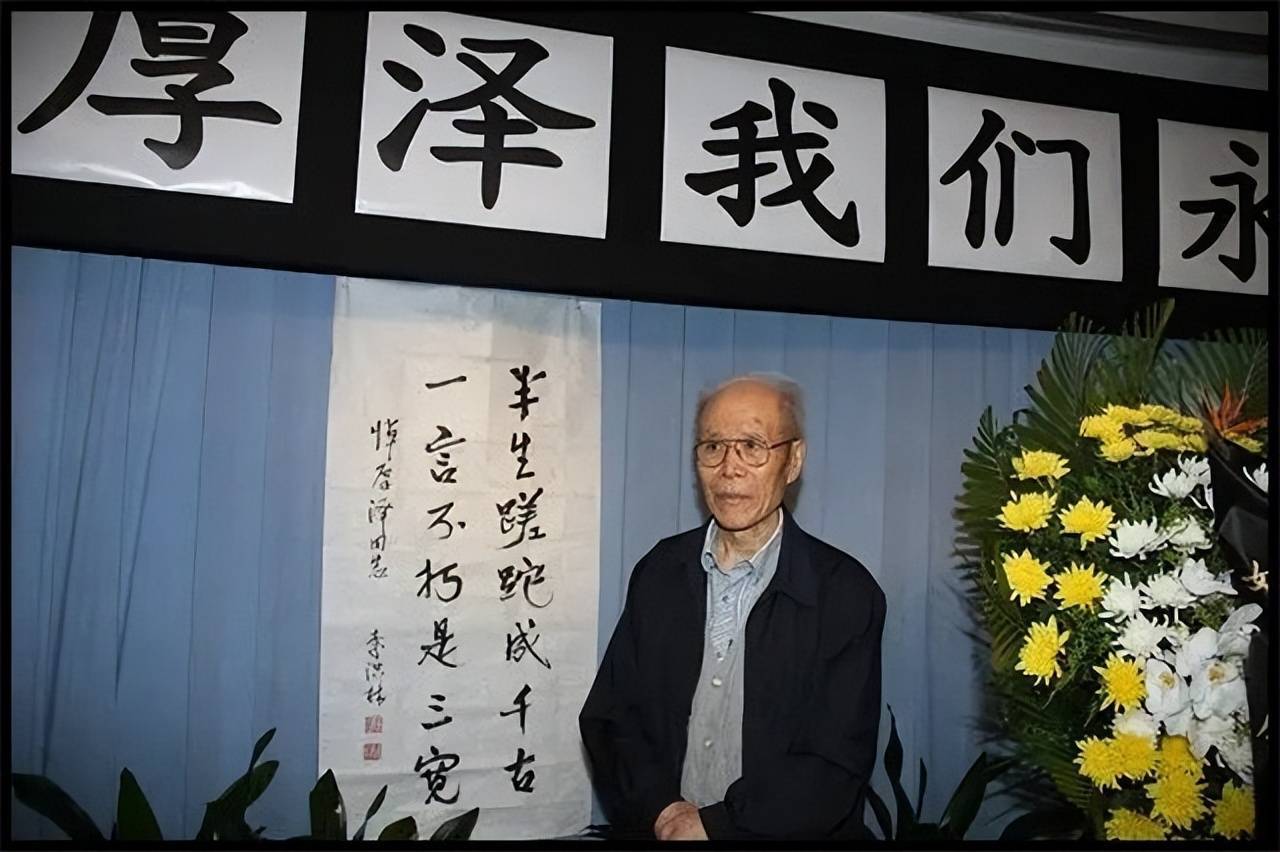 厚泽我们永
半生蹉跎成千古
一言不朽是三宽
悼厚泽同志 李洪林